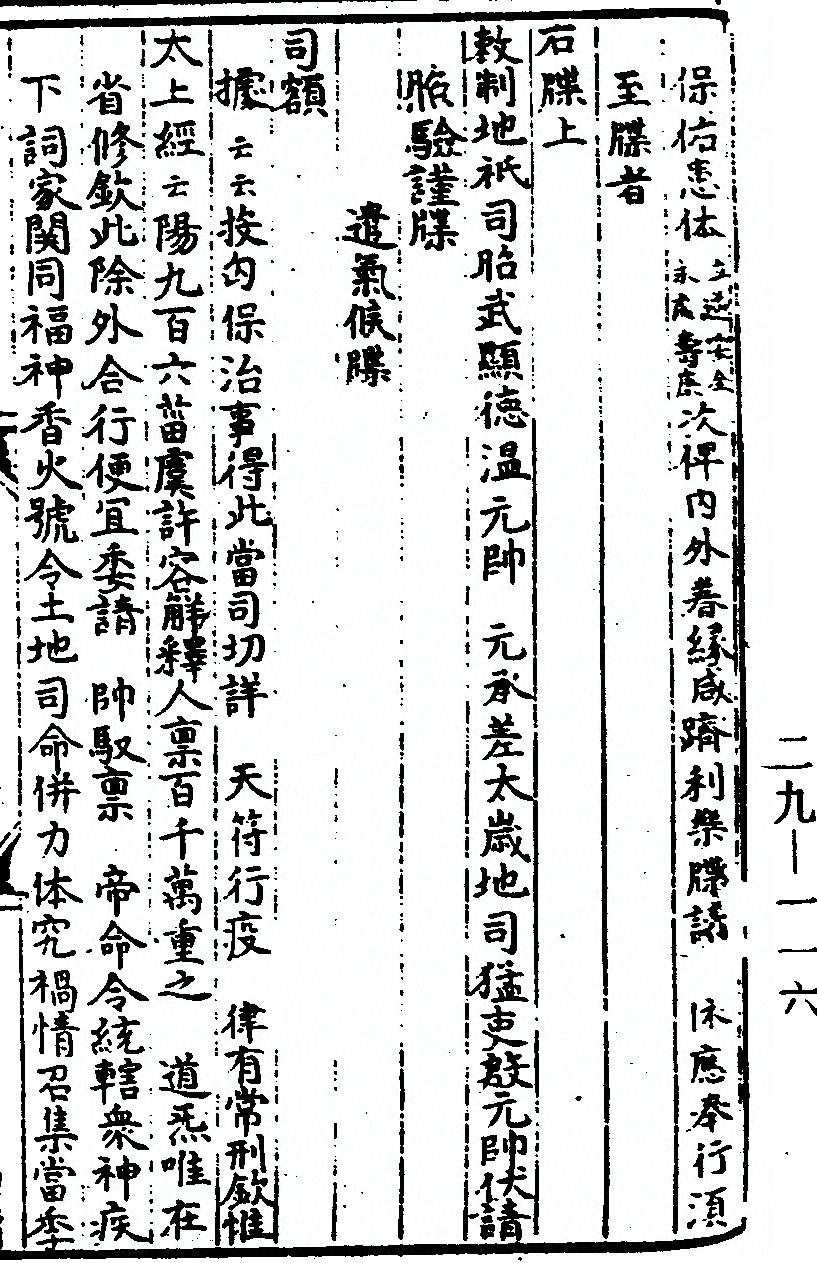 保佑患体立遂安全永庇壽康次俾内外眷緣咸躋利樂牒請　休應奉行須
至牒者
右牒上
敕制地祇司昭武顯德温元帥　元承差太歲地司猛吏殷元帥伏請
昭驗謹牒
遣氣候牒
司額
據云云按內保治事得此當司切詳　天符行疫　律有常刑欽惟
太上經云陽九百六葘虞許容觧釋人禀百千萬重之　道炁唯在
省修欽此除外合行便宜委請　帥馭禀　帝命令統轄衆神疾
下詞家関同福神香火號令土地司命併力体究禍情召集當季
二九—一一六